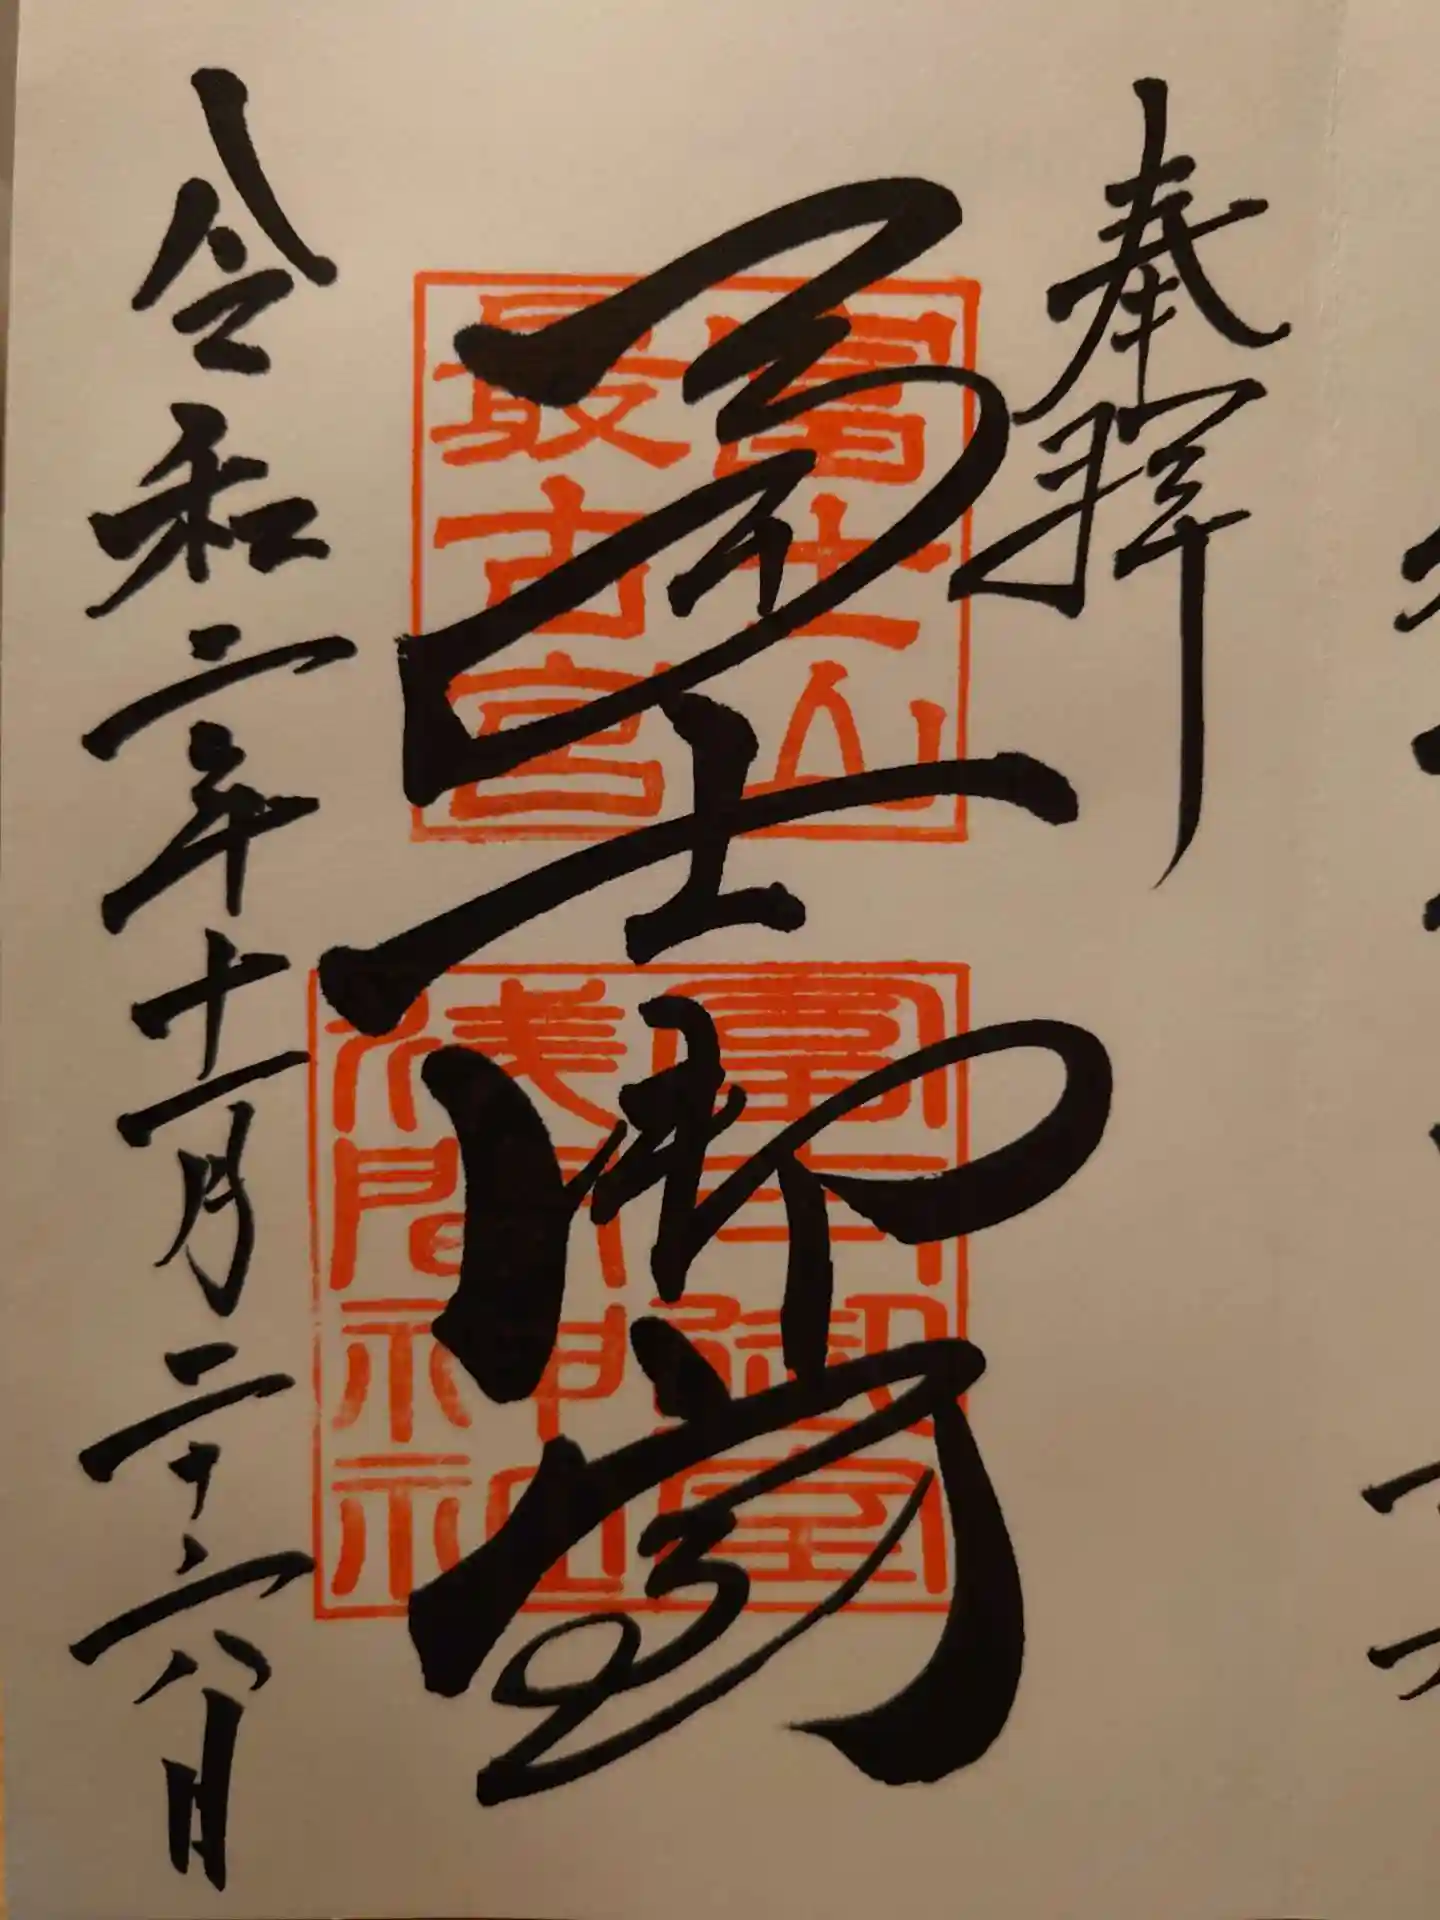 奉拝
冨士御室
冨士山
最古宮
冨士御室
淺間神社
令和二年十一月二十六日